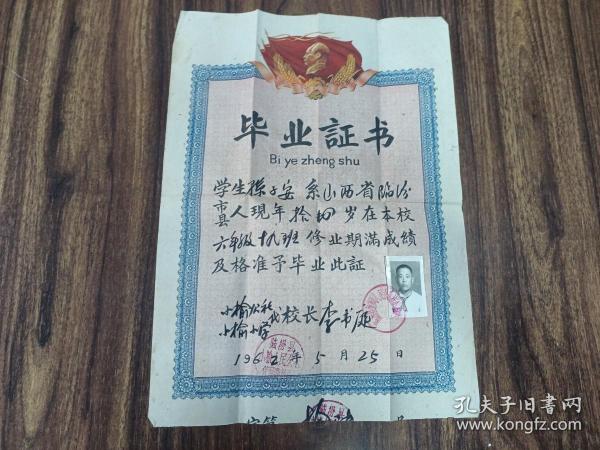 毕业証书
Bi ye zheng shu
学生孫子安 系山西省临汾
市县人現年拾四岁在本校
六年级十九班修业期满成績
及格准予毕业此証
小榆公社
小榆小学
代校长李书
1962年5月25日
字第 号
孔夫子旧书网
www.kongfz.com